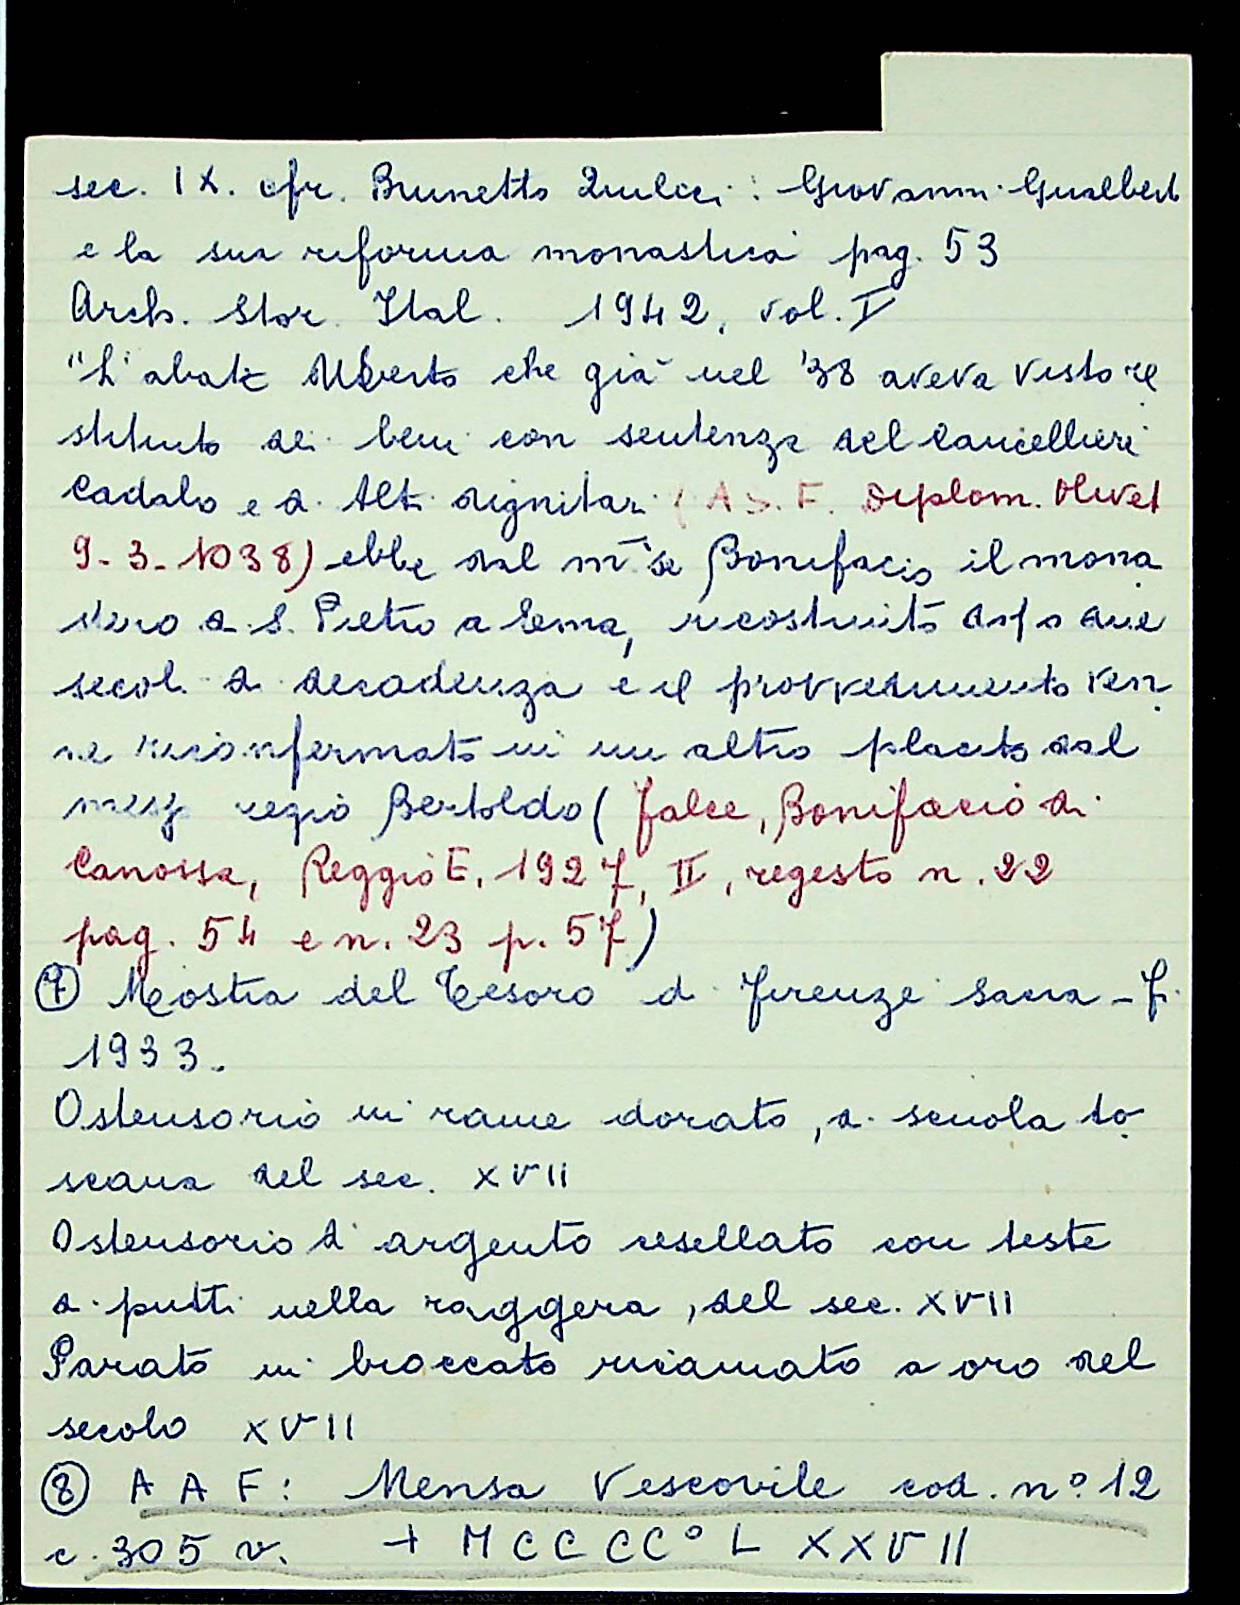 sec. IX. cfr. Brunetto Quilici: Giovanni Gualbert
e la sua riforma monastica pag. 53
Arch. Stor. Ital. 1942, vol. I
"L'abate Uberto che già nel '38 aveva visto re
stituito dei beni con sentenza del Cancellieri
Cadalo e di alti dignitari (A.S.F. Diplom. Olivet
9-3-1038) ebbe dal m.se Bonifacio il mona
stero di S. Pietro a Ema, ricostruito dopo due
secoli di decadenza e il provvedimento ven
ne riconfermato in un altro placito dal
regio Bertoldo (Falce, Bonifacio di
Canossa, Reggio E. 1927, II, regesto n. 22
pag. 54 e n. 23 p. 57)
⑦ Mostra del Tesoro di Firenze Sacra - F.
1933.
Ostensorio in rame dorato, di scuola to
scana del sec. XVII
Ostensorio d'argento cesellato con teste
di putti nella raggera, del sec. XVII
Parato in broccato ricamato a oro del
secolo XVII
⑧ A A F: Mensa Vescovile cod. n° 12
c. 305 v. + MCCCC° LXXVII